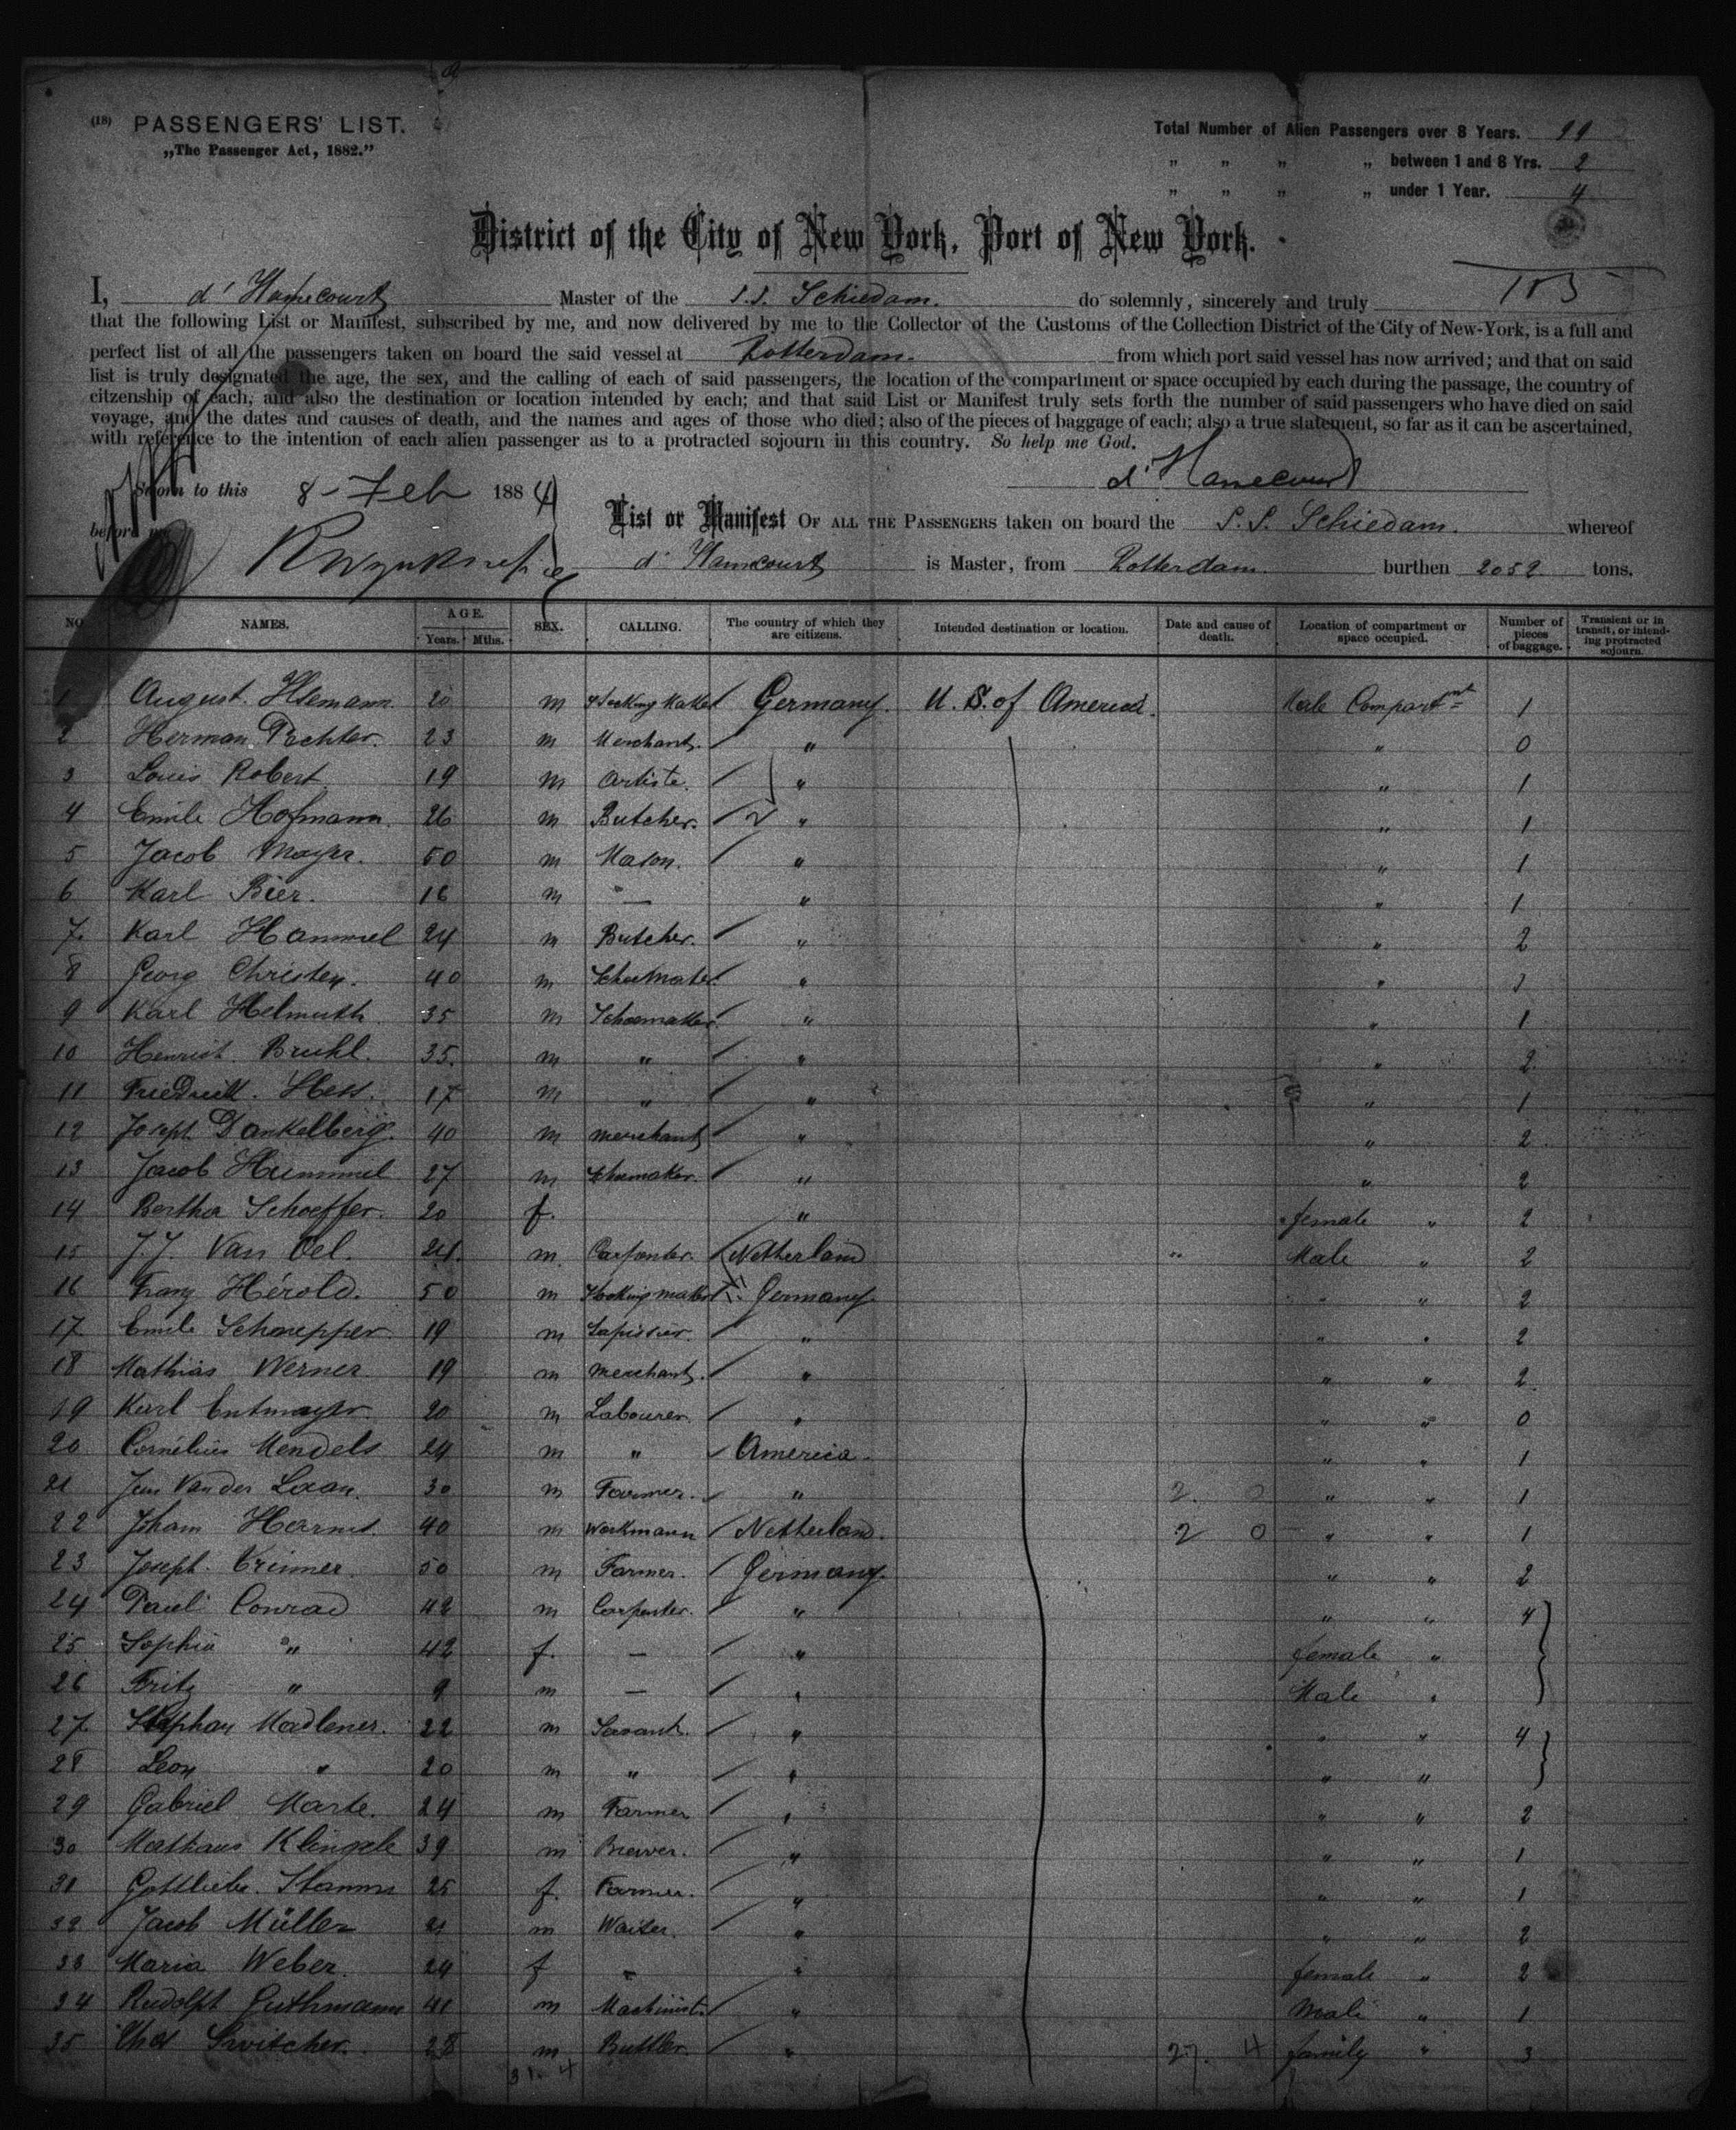 (18) PASSENGERS' LIST.
„The Passenger Act, 1882.”
Total Number of Alien Passengers over 8 Years. 99
„ „ „ „ between 1 and 8 Yrs. 2
„ „ „ „ under 1 Year. 4
105
District of the City of New York, Port of New York.
I, d'Hanecourt Master of the S.S. Schiedam. do solemnly, sincerely and truly
that the following List or Manifest, subscribed by me, and now delivered by me to the Collector of the Customs of the Collection District of the City of New-York, is a full and
perfect list of all the passengers taken on board the said vessel at Rotterdam. from which port said vessel has now arrived; and that on said
list is truly designated the age, the sex, and the calling of each of said passengers, the location of the compartment or space occupied by each during the passage, the country of
citzenship of each, and also the destination or location intended by each; and that said List or Manifest truly sets forth the number of said passengers who have died on said
voyage, and the dates and causes of death, and the names and ages of those who died; also of the pieces of baggage of each; also a true statement, so far as it can be ascertained,
with reference to the intention of each alien passenger as to a protracted sojourn in this country. So help me God.
d'Hanecourt
Sworn to this 8 - Feb 1884
before me
List or Manifest OF ALL THE PASSENGERS taken on board the S.S. Schiedam. whereof
d'Hanecourt is Master, from Rotterdam. burthen 2052 tons.
NO. NAMES. AGE. Years. Mths. SEX. CALLING. The country of which they are citizens. Intended destination or location. Date and cause of death. Location of compartment or space occupied. Number of pieces of baggage. Transient or in transit, or intending protracted sojourn.
1 August. 20 m Stocking Maker Germany. U. S. of America. Male Compartmt 1
2 Herman Pachter. 23 m Merchant. „ „ 0
3 Louis Robert 19 m Artiste. „ „ 1
4 Emile Hofmann. 26 m Butcher. „ „ 1
5 Jacob Mayer. 50 m Mason. „ „ 1
6 Karl Bier. 16 m — „ „ 1
7. Karl Hammel 24 m Butcher. „ „ 2
8 Georg Christen. 40 m Schoemaker. „ „ 1
9 Karl Helmuth 35 m Schoemaker. „ „ 1
10 Heinrich Bruhl. 35. m „ „ „ 2
11 Friedrich. Hess. 17 m „ „ „ 1
12 Joseph Dankelberg. 40 m merchant „ „ 2
13 Jacob Hummel 27 m Schumaker. „ „ 2
14 Bertha Schoeffer. 20 f. „ female „ 2
15 J. J. Van Oel. 24. m. Carpenter. Netherland „ Male „ 2
16 Franz Hérold. 50 m Stocking maker Germany. „ „ 2
17 Emile Schnepper 19 m Tapissier. „ „ „ 2
18 Mathias Werner 19 m merchant. „ „ „ 2
19 Karl Entmayer. 20 m Labourer. „ „ „ 0
20 Cornélius Mendels 24 m „ America. „ „ 1
21 Jan Van der Laan. 30 m Farmer. „ 2. 0 „ „ 1
22 Johann Harms 40 m Workmann Netherland. 2 0 „ „ 1
23 Joseph. 50 m Farmer. Germany. „ „ 2
24 Paul Conrad 42 m Carpenter. „ „ „ 4
25 Sophia „ 42 f. — „ female „
26 Fritz „ 9 m — „ Male „
27 Stephan Madlener. 22 m Servant. „ „ „ 4
28 Leon „ 20 m „ „ „ „
29 Gabriel Marte. 24 m Farmer „ „ „ 2
30 Mathaus Klingele 39 m Brewer. „ „ „ 1
31 Gottlieb. Stamm 25 f. Farmer. „ „ „ 1
32 Jacob Müller 21 m Waiter. „ „ „ 2
33 Maria Weber. 24 f — „ female „ 2
34 Rudolph Guthmann 41 m Machinist. „ Male „ 1
35 Switcher. 28 m Buttler. „ 27. 4 family „ 3
31. 4